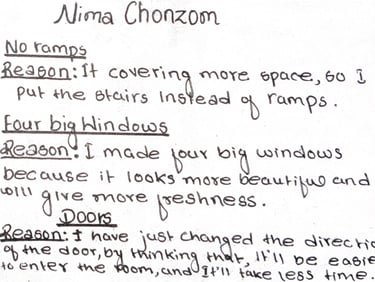 Nima Chonzom
No ramps
Reason: It covering more space, so I
put the stairs instead of ramps.
Four big Windows
Reason: I made four big windows
because it looks more beautiful and
will give more freshness.
Doors
Reason: I have just changed the directio
of the door, by thinking that, It'll be easie
to enter the room, and It'll take less time.